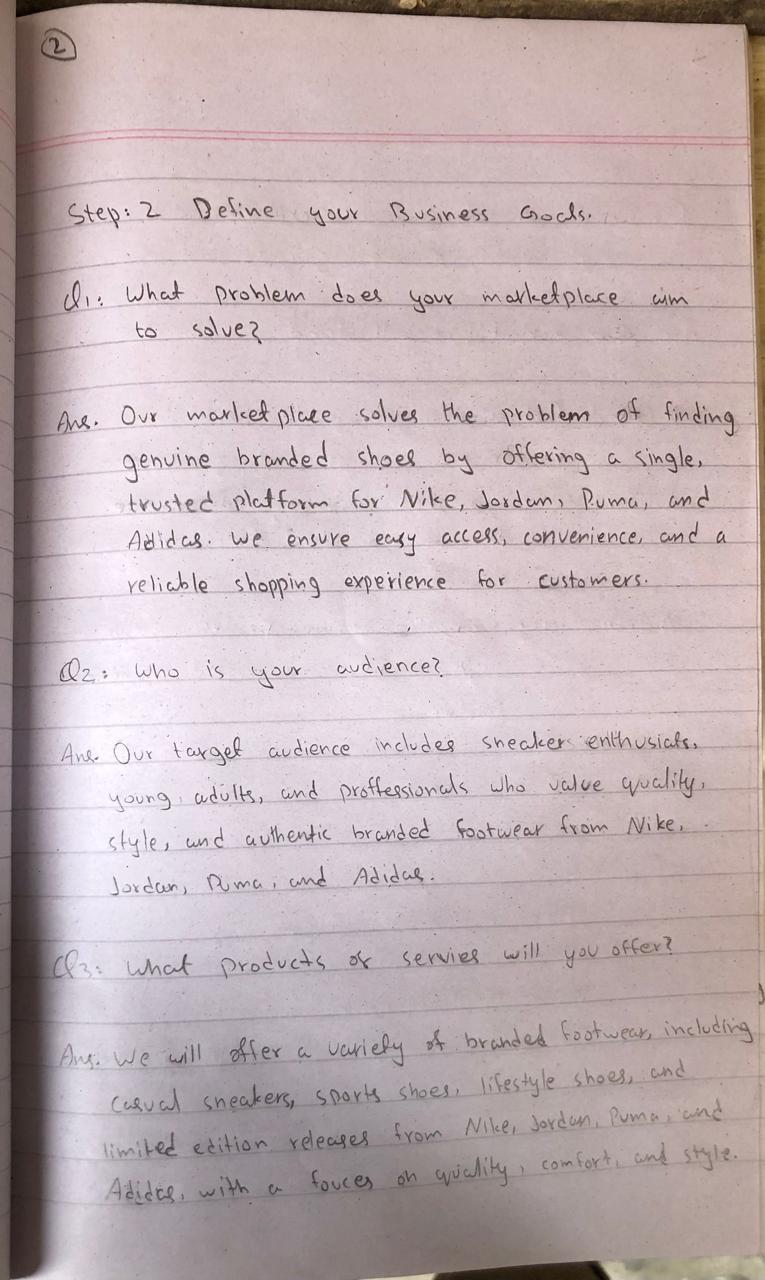 2
Step: 2 Define your Business Goals.
Q1: What problem does your marketplace aim
to solve?
Ans. Our marketplace solves the problem of finding
genuine branded shoes by offering a single,
trusted platform for Nike, Jordan, Puma, and
Adidas. We ensure easy access, convenience, and a
reliable shopping experience for customers.
Q2: Who is your audience?
Ans. Our target audience includes sneaker enthusiats,
young, adults, and proffessionals who value quality,
style, and authentic branded footwear from Nike,
Jordan, Puma, and Adidas.
Q3: What products or servies will you offer?
Ans. We will offer a variety of branded footwear, including
casual sneakers, sports shoes, lifestyle shoes, and
limited edition releases from Nike, Jordan, Puma, and
Adidas, with a fouces on quality, comfort, and style.